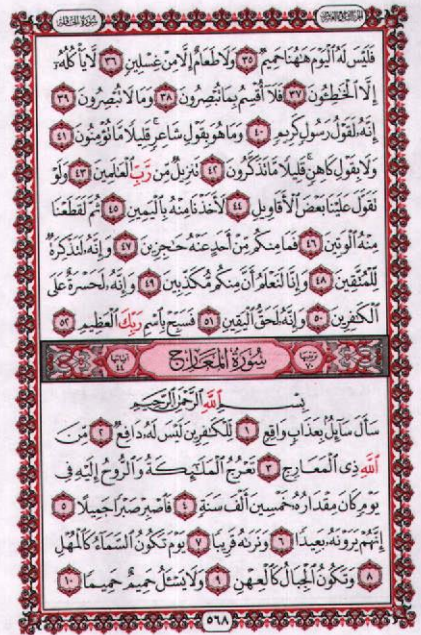 الجزء التاسع والعشرون
سورة الحاقة
فَلَيْسَ لَهُ ٱلْيَوْمَ هَٰهُنَا حَمِيمٌ ٣٥ وَلَا طَعَامٌ إِلَّا مِنْ غِسْلِينٍ ٣٦ لَّا يَأْكُلُهُۥٓ
إِلَّا ٱلْخَٰطِـُٔونَ ٣٧ فَلَآ أُقْسِمُ بِمَا تُبْصِرُونَ ٣٨ وَمَا لَا تُبْصِرُونَ ٣٩
إِنَّهُۥ لَقَوْلُ رَسُولٍ كَرِيمٍ ٤٠ وَمَا هُوَ بِقَوْلِ شَاعِرٍ ۚ قَلِيلًا مَّا تُؤْمِنُونَ ٤١
وَلَا بِقَوْلِ كَاهِنٍ ۚ قَلِيلًا مَّا تَذَكَّرُونَ ٤٢ تَنزِيلٌ مِّن رَّبِّ ٱلْعَٰلَمِينَ ٤٣ وَلَوْ
تَقَوَّلَ عَلَيْنَا بَعْضَ ٱلْأَقَاوِيلِ ٤٤ لَأَخَذْنَا مِنْهُ بِٱلْيَمِينِ ٤٥ ثُمَّ لَقَطَعْنَا
مِنْهُ ٱلْوَتِينَ ٤٦ فَمَا مِنكُم مِّنْ أَحَدٍ عَنْهُ حَٰجِزِينَ ٤٧ وَإِنَّهُۥ لَتَذْكِرَةٌ
لِّلْمُتَّقِينَ ٤٨ وَإِنَّا لَنَعْلَمُ أَنَّ مِنكُم مُّكَذِّبِينَ ٤٩ وَإِنَّهُۥ لَحَسْرَةٌ عَلَى
ٱلْكَٰفِرِينَ ٥٠ وَإِنَّهُۥ لَحَقُّ ٱلْيَقِينِ ٥١ فَسَبِّحْ بِٱسْمِ رَبِّكَ ٱلْعَظِيمِ ٥٢
ترتيبها ٧٠ سُورَةُ المَعَارِج آياتها ٤٤
بِسْمِ ٱللَّهِ ٱلرَّحْمَٰنِ ٱلرَّحِيمِ
سَأَلَ سَآئِلٌۢ بِعَذَابٍ وَاقِعٍ ١ لِّلْكَٰفِرِينَ لَيْسَ لَهُۥ دَافِعٌ ٢ مِّنَ
ٱللَّهِ ذِى ٱلْمَعَارِجِ ٣ تَعْرُجُ ٱلْمَلَٰٓئِكَةُ وَٱلرُّوحُ إِلَيْهِ فِى
يَوْمٍ كَانَ مِقْدَارُهُۥ خَمْسِينَ أَلْفَ سَنَةٍ ٤ فَٱصْبِرْ صَبْرًا جَمِيلًا ٥
إِنَّهُمْ يَرَوْنَهُۥ بَعِيدًا ٦ وَنَرَىٰهُ قَرِيبًا ٧ يَوْمَ تَكُونُ ٱلسَّمَآءُ كَٱلْمُهْلِ
٨ وَتَكُونُ ٱلْجِبَالُ كَٱلْعِهْنِ ٩ وَلَا يَسْـَٔلُ حَمِيمٌ حَمِيمًا ١٠
٥٦٨